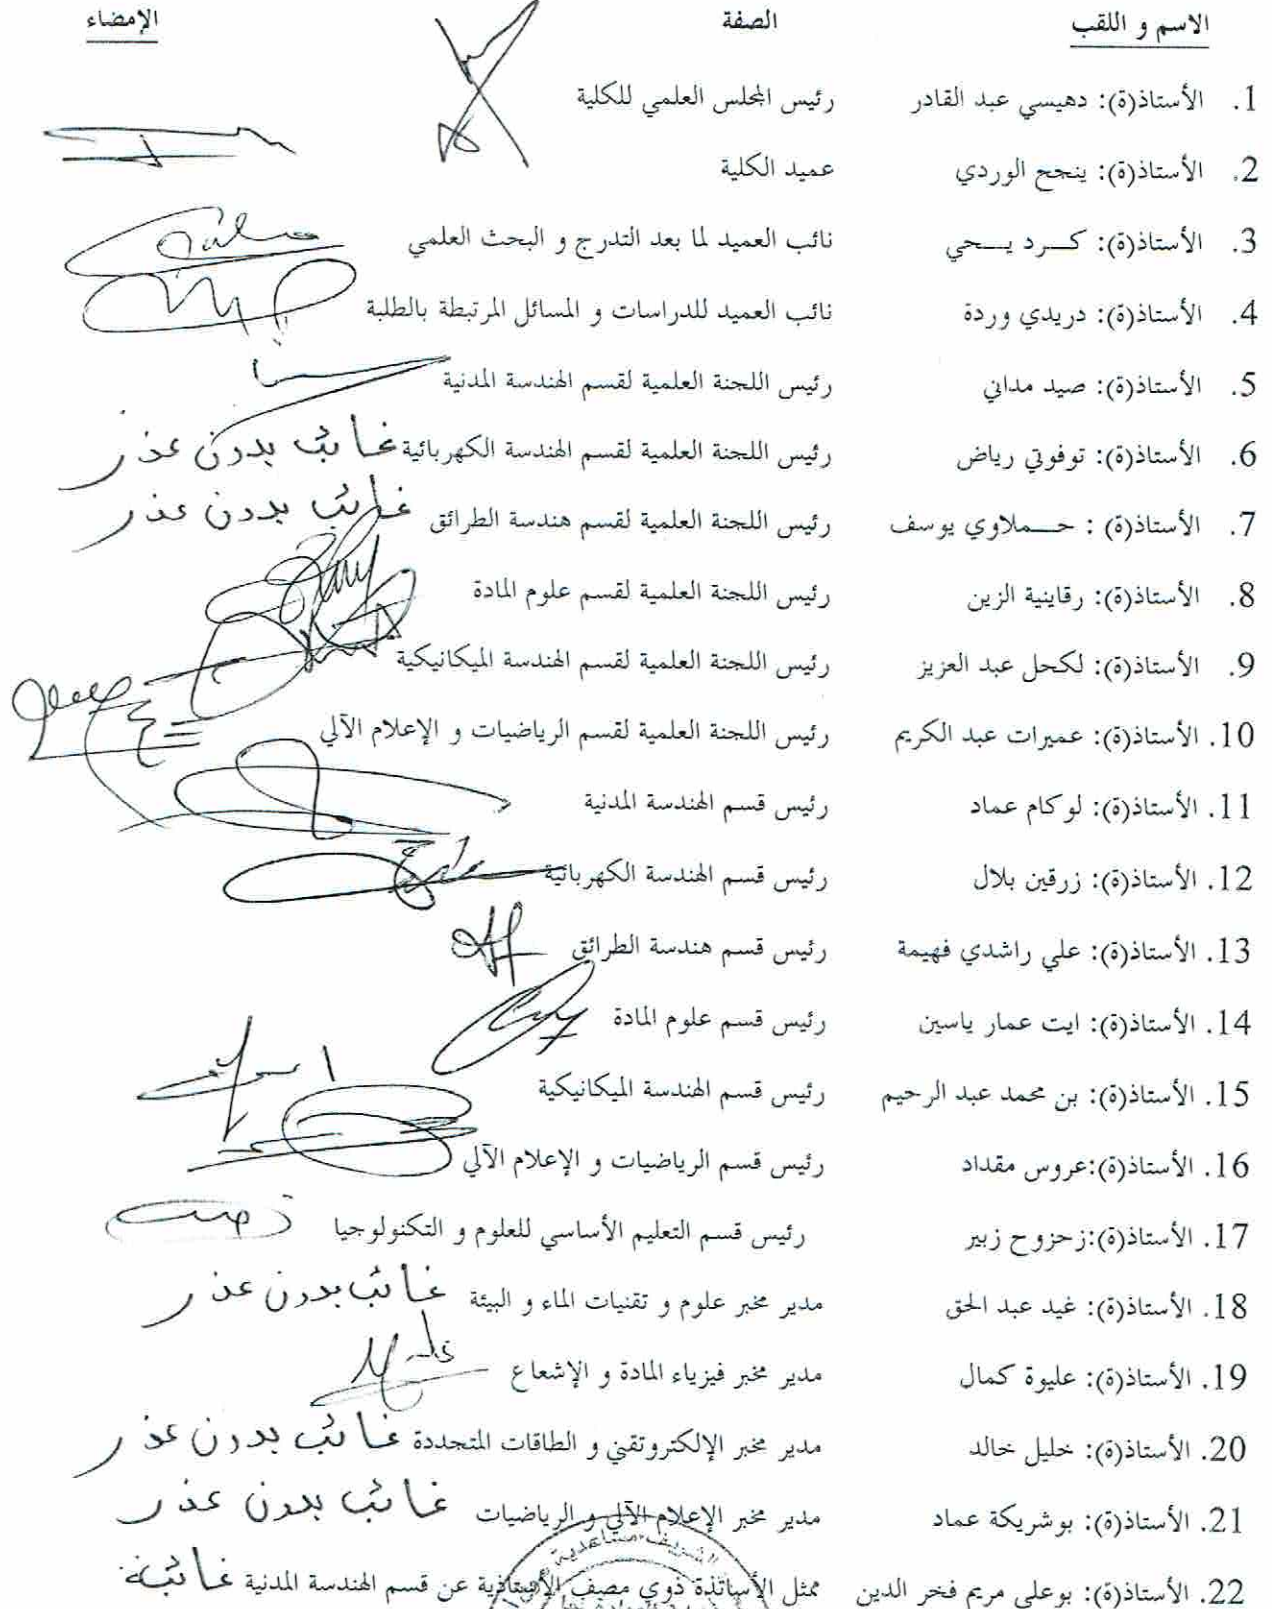 الاسم و اللقب الصفة الإمضاء
1. الأستاذ(ة): دهيسي عبد القادر رئيس المجلس العلمي للكلية
2. الأستاذ(ة): ينجح الوردي عميد الكلية
3. الأستاذ(ة): كـــرد يـــحي نائب العميد لما بعد التدرج و البحث العلمي
4. الأستاذ(ة): دريدي وردة نائب العميد للدراسات و المسائل المرتبطة بالطلبة
5. الأستاذ(ة): صيد مداني رئيس اللجنة العلمية لقسم الهندسة المدنية
6. الأستاذ(ة): توفوتي رياض رئيس اللجنة العلمية لقسم الهندسة الكهربائية غائب بدون عذر
7. الأستاذ(ة) : حـــملاوي يوسف رئيس اللجنة العلمية لقسم هندسة الطرائق غائب بدون عذر
8. الأستاذ(ة): رقاينية الزين رئيس اللجنة العلمية لقسم علوم المادة
9. الأستاذ(ة): لكحل عبد العزيز رئيس اللجنة العلمية لقسم الهندسة الميكانيكية
10. الأستاذ(ة): عميرات عبد الكريم رئيس اللجنة العلمية لقسم الرياضيات و الإعلام الآلي
11. الأستاذ(ة): لوكام عماد رئيس قسم الهندسة المدنية
12. الأستاذ(ة): زرقين بلال رئيس قسم الهندسة الكهربائية
13. الأستاذ(ة): علي راشدي فهيمة رئيس قسم هندسة الطرائق
14. الأستاذ(ة): ايت عمار ياسين رئيس قسم علوم المادة
15. الأستاذ(ة): بن محمد عبد الرحيم رئيس قسم الهندسة الميكانيكية
16. الأستاذ(ة):عروس مقداد رئيس قسم الرياضيات و الإعلام الآلي
17. الأستاذ(ة):زحزوح زبير رئيس قسم التعليم الأساسي للعلوم و التكنولوجيا
18. الأستاذ(ة): غيد عبد الحق مدير مخبر علوم و تقنيات الماء و البيئة غائب بدون عذر
19. الأستاذ(ة): عليوة كمال مدير مخبر فيزياء المادة و الإشعاع
20. الأستاذ(ة): خليل خالد مدير مخبر الإلكتروتقني و الطاقات المتجددة غائب بدون عذر
21. الأستاذ(ة): بوشريكة عماد مدير مخبر الإعلام الآلي و الرياضيات غائب بدون عذر
22. الأستاذ(ة): بوعلي مريم فخر الدين ممثل الأساتذة ذوي مصف الأستاذية عن قسم الهندسة المدنية غائبة